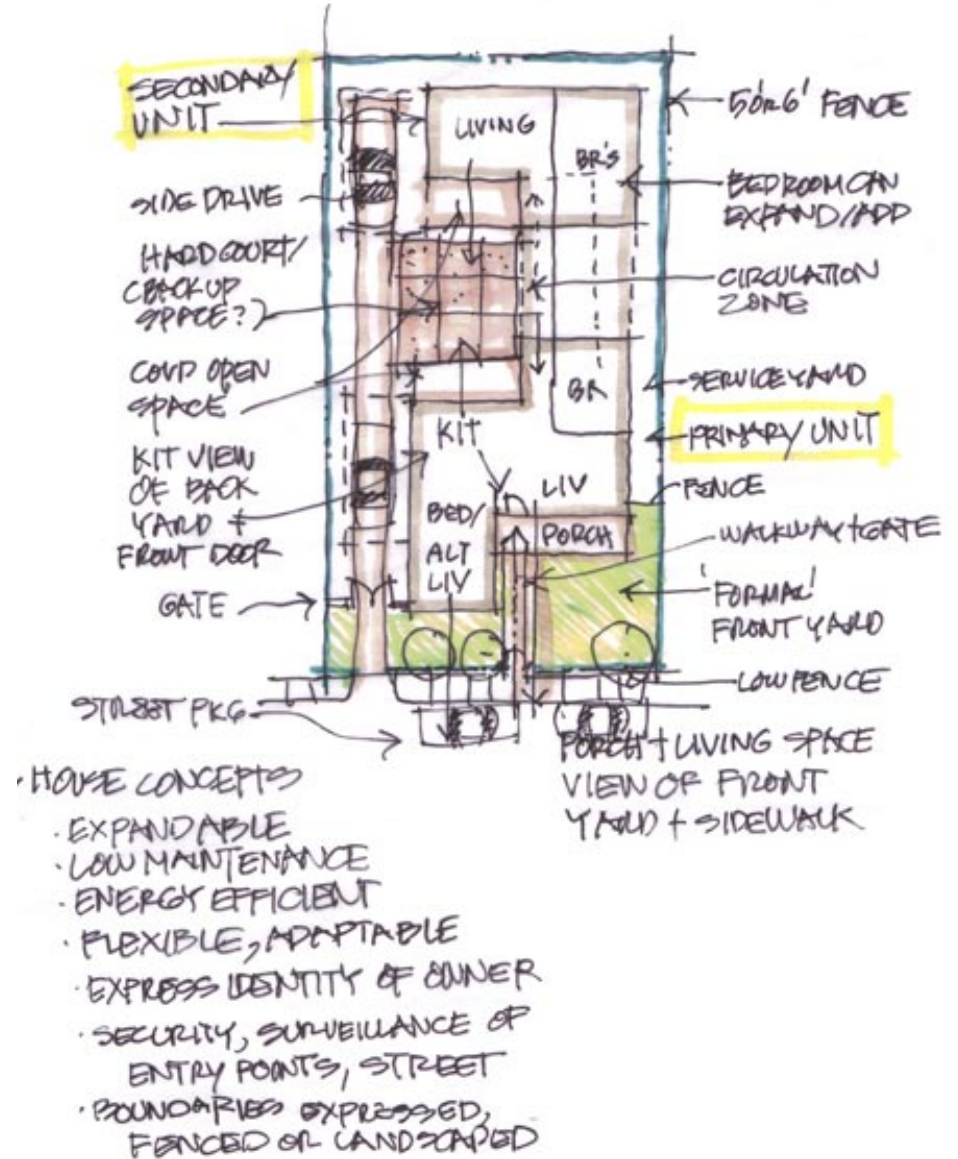 SECONDARY
UNIT
SIDE DRIVE
HARD COURT/
(BACK UP
SPACE?)
COV'D OPEN
SPACE
KIT VIEW
OF BACK
YARD +
FRONT DOOR
GATE
STREET PKG
LIVING
BR'S
BR
KIT
LIV
BED/
ALT
LIV
PORCH
5' OR 6' FENCE
BEDROOM CAN
EXPAND/ADD
CIRCULATION
ZONE
SERVICE YARD
PRIMARY UNIT
FENCE
WALKWAY + GATE
'FORMAL'
FRONT YARD
LOW FENCE
PORCH + LIVING SPACE
VIEW OF FRONT
YARD + SIDEWALK
· HOUSE CONCEPTS
· EXPANDABLE
· LOW MAINTENANCE
· ENERGY EFFICIENT
· FLEXIBLE, ADAPTABLE
· EXPRESS IDENTITY OF OWNER
· SECURITY, SURVEILLANCE OF
ENTRY POINTS, STREET
· BOUNDARIES EXPRESSED,
FENCED OR LANDSCAPED